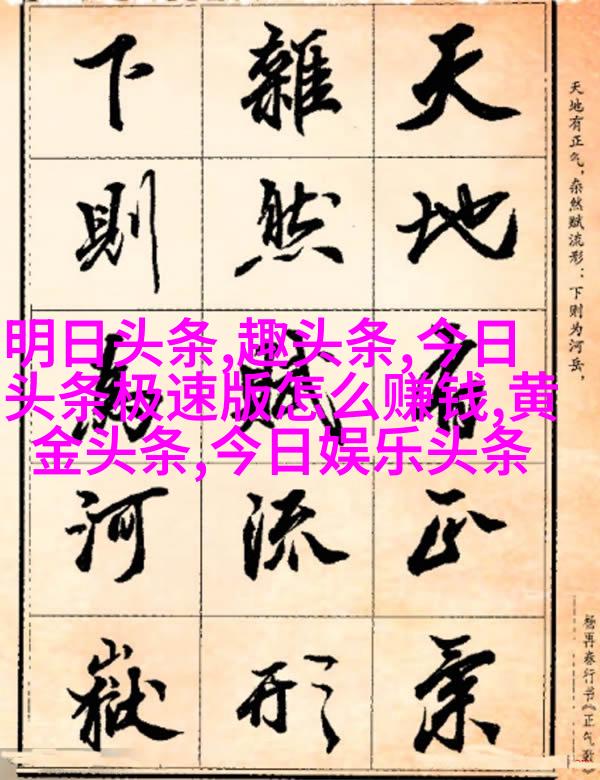 天地有正气，杂然赋流形：下则为河岳，
杨再春行书《正气歌》
天地有正氣
雜然賦流形
下則為河嶽
明日头条,趣头条,今日
头条极速版怎么赚钱,黄
金头条,今日娱乐头条